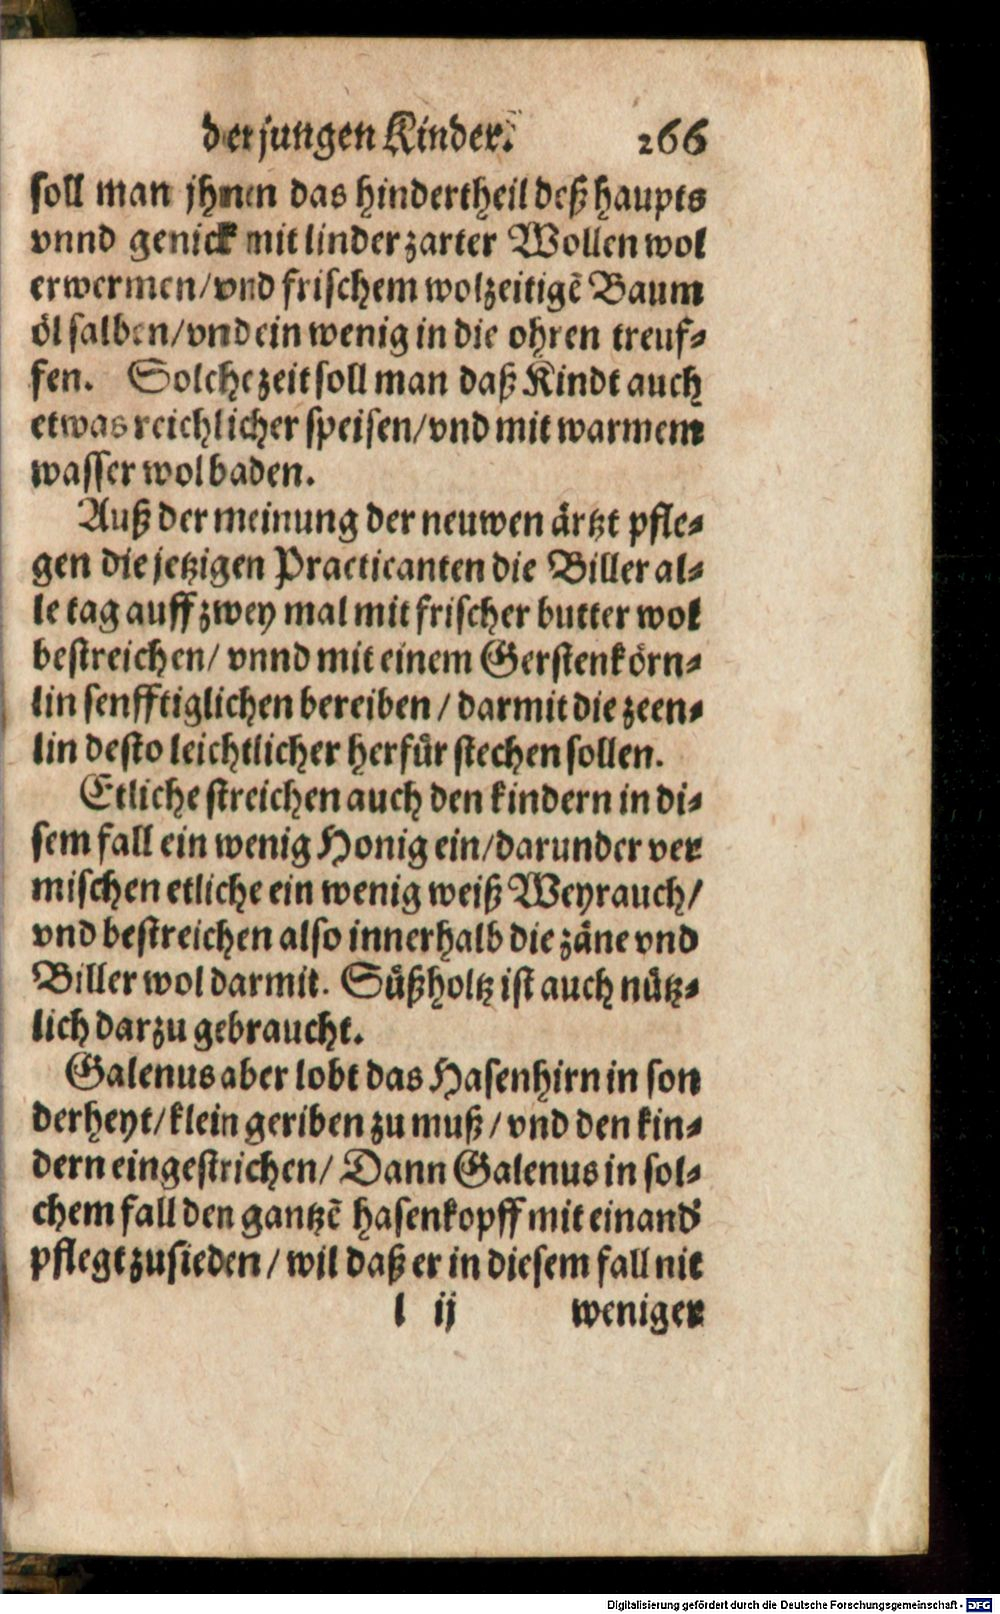 der jungen Kinder. 266
soll man jhnen das hindertheil deß haupts
vnnd genick mit linder zarter Wollen wol
erwermen/vnd frischem wolzeitigẽ Baum
öl salben/vnd ein wenig in die ohren treuf-
fen. Solche zeit soll man daß Kindt auch
etwas reichlicher speisen/vnd mit warmem
wasser wol baden.
Auß der meinung der neuwen ärtzt pfle-
gen die jetzigen Practicanten die Biller al-
le tag auff zwey mal mit frischer butter wol
bestreichen/ vnnd mit einem Gerstenkörn-
lin senfftiglichen bereiben / darmit die zeen-
lin desto leichtlicher herfür stechen sollen.
Etliche streichen auch den kindern in di-
sem fall ein wenig Honig ein/darunder ver
mischen etliche ein wenig weiß Weyrauch/
vnd bestreichen also innerhalb die zäne vnd
Biller wol darmit. Süßholtz ist auch nütz-
lich darzu gebraucht.
Galenus aber lobt das Hasenhirn in son
derheyt/klein geriben zu muß / vnd den kin-
dern eingestrichen/ Dann Galenus in sol-
chem fall den gantzẽ hasenkopff mit einand'
pflegt zusieden / wil daß er in diesem fall nit
l ij weniger
Digitalisierung gefördert durch die Deutsche Forschungsgemeinschaft - DFG